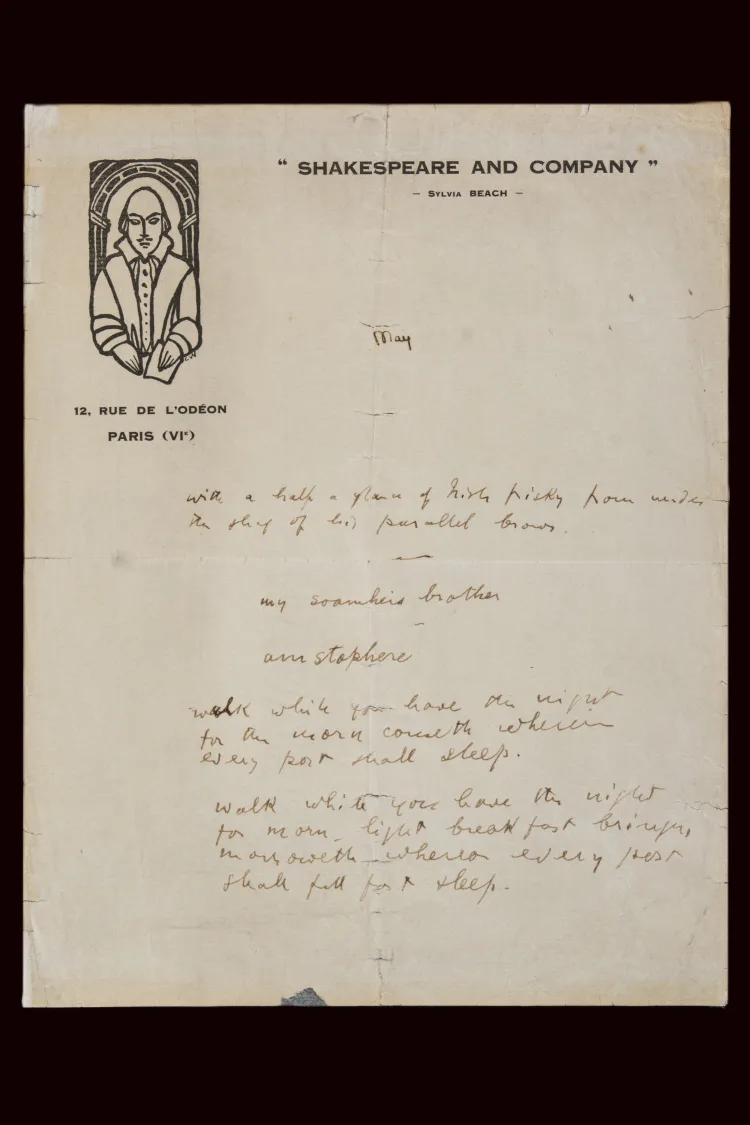 “ SHAKESPEARE AND COMPANY ”
– SYLVIA BEACH –
May
12, RUE DE L'ODÉON
PARIS (VIᵉ)
with a half a glance of Irish frisky from under
the shag of his parallel brows.
my soamheis brother
amstophere
walk while you have the night
for the morn cometh wherein
every past shall sleep.
walk while you have the night
for morn, light breakfast bringer,
morroweth whereon every past
shall full fast sleep.